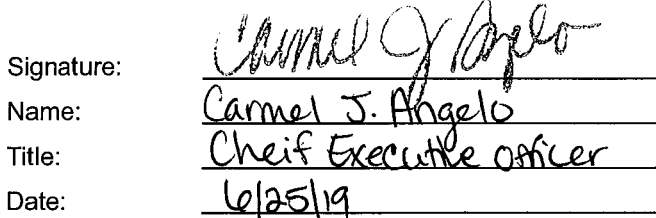 Signature: Carmel J Angelo
Name: Carmel J. Angelo
Title: Cheif Executive officer
Date: 6/25/19